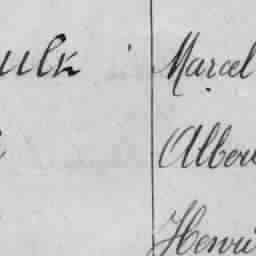 ulk Marcel
Alber
Henri